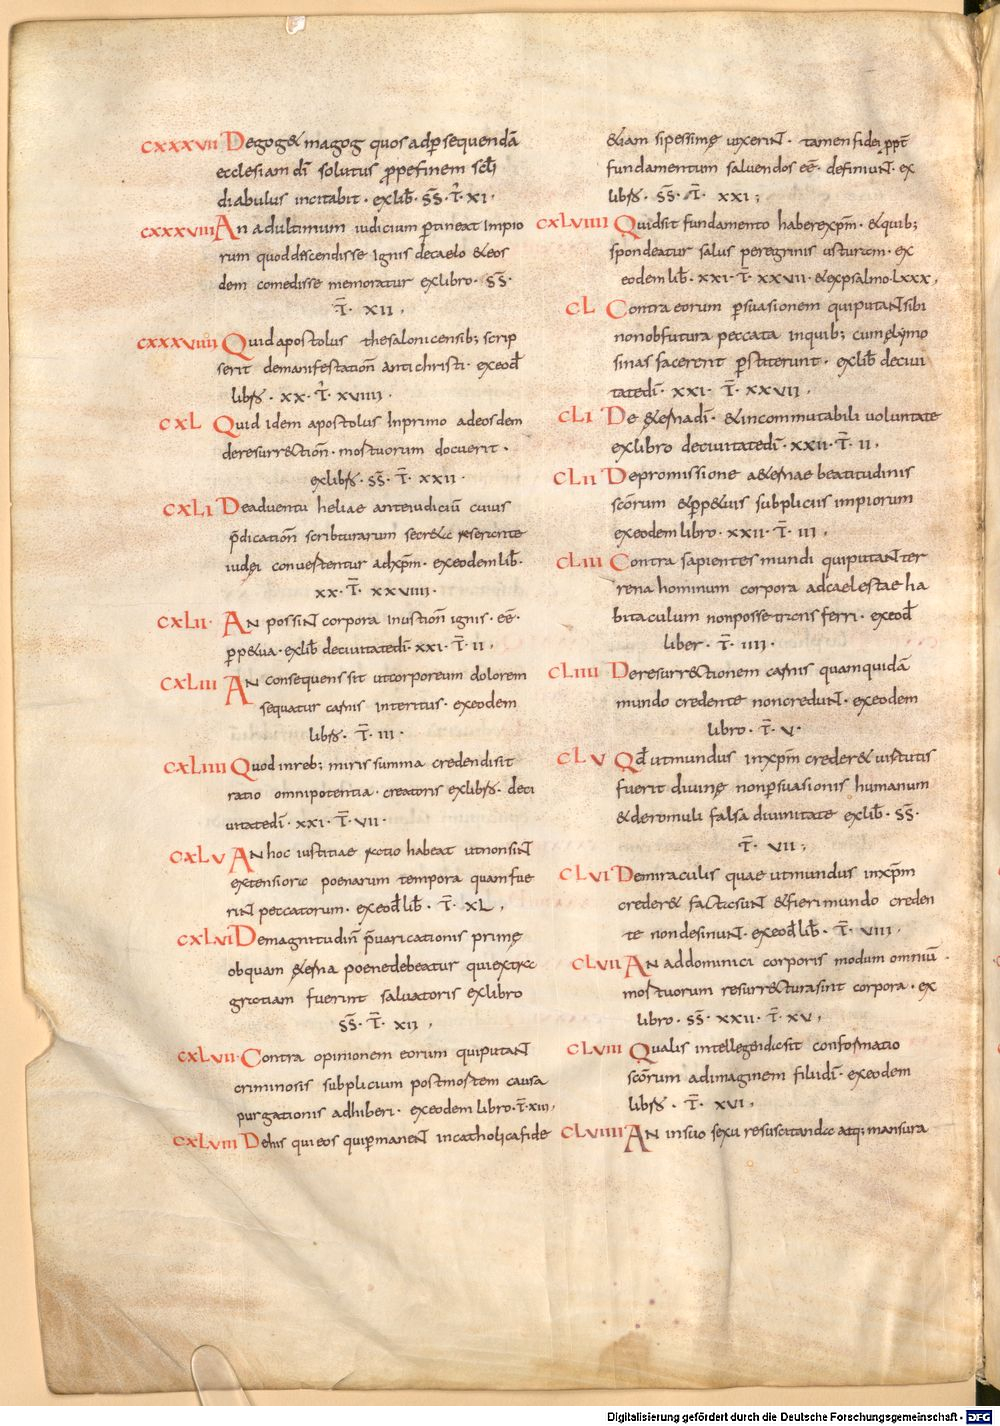 CXXXVII De gog & magog quos ad p̄sequendā
ecclesiam dī solutus ꝓpe finem sc̄li
diabulus incitabit · ex lib̄ · s̄s̄ · t̄ · XI ·
CXXXVIII An ad ultimum iudicium ꝑtineat impio
rum quod discendisse ignis de caelo & eos
dem comedisse memoratur ex libro · s̄s̄ ·
t̄ · XII ·
CXXXVIIII Quid apostolus thesalonicensib; scrip
serit de manifestation̄ antichristi · ex eod̄
libro · XX · t̄ · XVIIII ·
CXL Quid idem apostolus in primo ad eosdem
de resurrection̄ · mortuorum docuerit ·
ex libro · s̄s̄ · t̄ · XXII ·
CXLI De aduentu heliae ante iudiciū cuius
p̄dication̄ scribturarum secreta reserante
iudei conuertentur ad xp̄m · ex eodem lib̄ ·
XX · t̄ · XXVIIII ·
CXLII · An possint corpora in ustion̄ ignis · eē ·
ꝑp&ua · ex lib̄ de ciuitate dī · XXI · t̄ · II ·
CXLIII An consequens sit ut corporeum dolorem
sequatur carnis interitus · ex eodem
libro · t̄ · III ·
CXLIIII Quod in reb; miris summa credendi sit
ratio omnipotentia · creatoris ex libro · de ci
uitate dī · XXI · t̄ · VII ·
CXLV An hoc iustitiae ratio habeat ut non sint
extensiora poenarum tempora quam fue
rint peccatorum · ex eod̄ lib̄ · t̄ · XL ·
CXLVI De magnitudin̄ p̄uaricationis prime
ob quam &erna poene debeatur qui extra
gratiam fuerint saluatoris ex libro
s̄s̄ · t̄ · XII ·
CXLVII · Contra opinionem eorum qui putant
criminosis subplicium post mortem causa
purgationis adhiberi · ex eodem libro · t̄ · XIII ·
CXLVIII De his qui eos qui ꝑmanent in catholica fide
&iam si pessime uixerint · tamen fidei ꝓpt̄
fundamentum saluendos eē · definiunt · ex
libro · s̄s̄ · t̄ · XXI ;
CXLVIIII Quid sit fundamento habere xp̄m · & quib;
spondeatur salus peregrinis usturam · ex
eodem lib̄ · XXI · t̄ · XXVII · & ex psalmo · LXXX ·
CL Contra eorum ꝑsuasionem qui putant sibi
non obfutura peccata in quib; cum elymo
sinas facerent ꝑstiterunt · ex lib̄ de ciui
tate dī · XXI · t̄ · XXVII ·
CLI De &erna dī · & incommutabili uoluntate
ex libro de ciuitate dī · XXII · t̄ · II ·
CLII De promissione a&ernae beatitudinis
sc̄orum & ꝑp&uis subpliciis impiorum
ex eodem libro · XXII · t̄ · III ·
CLIII Contra sapientes mundi qui putant ter
rena hominum corpora ad caelestae ha
bitaculum non posse transferri · ex eod̄
liber · t̄ · IIII ·
CLIIII De resurrectionem carnis quam quidā
mundo credente non credunt · ex eodem
libro · t̄ · V ·
CLV Qd̄ ut mundus in xp̄m creder& uirtutis
fuerit diuine non ꝑsuasionis humanum
& de romuli falsa diuinitate ex lib̄ · s̄s̄ ·
t̄ · VII ;
CLVI De miraculis quae ut mundus in xp̄m
creder& facta sunt & fieri mundo creden
te non desinunt · ex eod̄ lib̄ · t̄ · VIII ·
CLVII An ad dominici corporis modum omniū ·
mortuorum resurrectura sint corpora · ex
libro · s̄s̄ · XXII · t̄ · XV ·
CLVIII Qualis intellegenda sit conformatio
sc̄orum ad imaginem filii dī · ex eodem
libro · t̄ · XVI ·
CLVIIII An in suo sexu resuscitanda atq; mansura
Digitalisierung gefördert durch die Deutsche Forschungsgemeinschaft - DFG